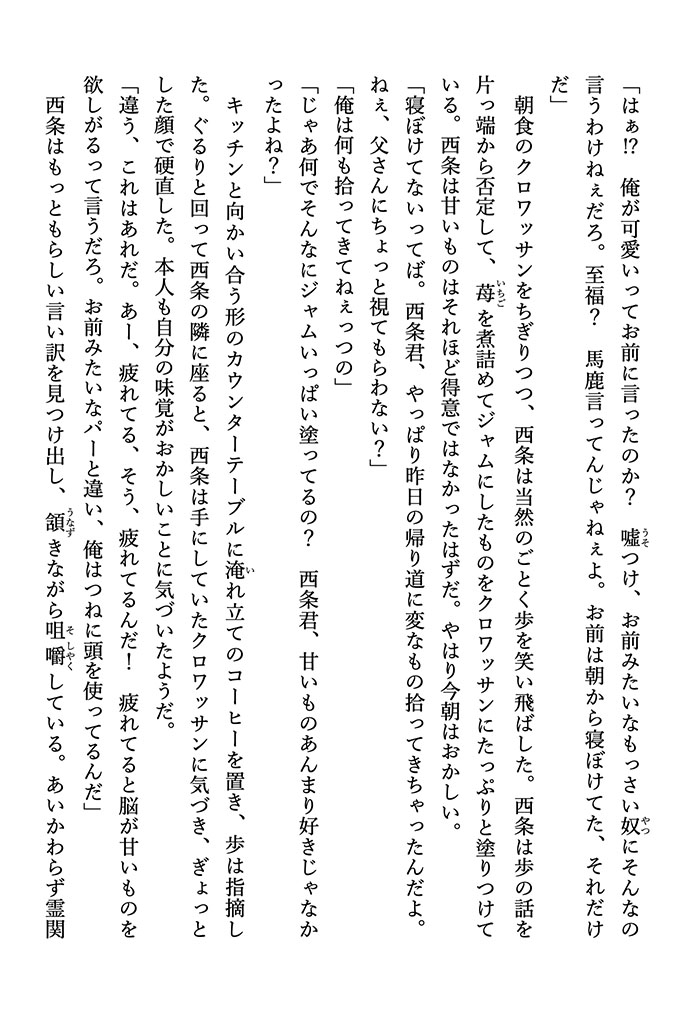 「はぁ!?　俺が可愛いってお前に言ったのか？　嘘つけ、お前みたいなもっさい奴にそんなの
言うわけねぇだろ。至福？　馬鹿言ってんじゃねぇよ。お前は朝から寝ぼけてた、それだけ
だ」
　朝食のクロワッサンをちぎりつつ、西条は当然のごとく歩を笑い飛ばした。西条は歩の話を
片っ端から否定して、苺を煮詰めてジャムにしたものをクロワッサンにたっぷりと塗りつけて
いる。西条は甘いものはそれほど得意ではなかったはずだ。やはり今朝はおかしい。
「寝ぼけてないってば。西条君、やっぱり昨日の帰り道に変なもの拾ってきちゃったんだよ。
ねぇ、父さんにちょっと視てもらわない？」
「俺は何も拾ってきてねぇっつの」
「じゃあ何でそんなにジャムいっぱい塗ってるの？　西条君、甘いものあんまり好きじゃなか
ったよね？」
　キッチンと向かい合う形のカウンターテーブルに淹れ立てのコーヒーを置き、歩は指摘し
た。ぐるりと回って西条の隣に座ると、西条は手にしていたクロワッサンに気づき、ぎょっと
した顔で硬直した。本人も自分の味覚がおかしいことに気づいたようだ。
「違う、これはあれだ。あー、疲れてる、そう、疲れてるんだ！　疲れてると脳が甘いものを
欲しがるって言うだろ。お前みたいなパーと違い、俺はつねに頭を使ってるんだ」
　西条はもっともらしい言い訳を見つけ出し、頷きながら咀嚼している。あいかわらず霊関